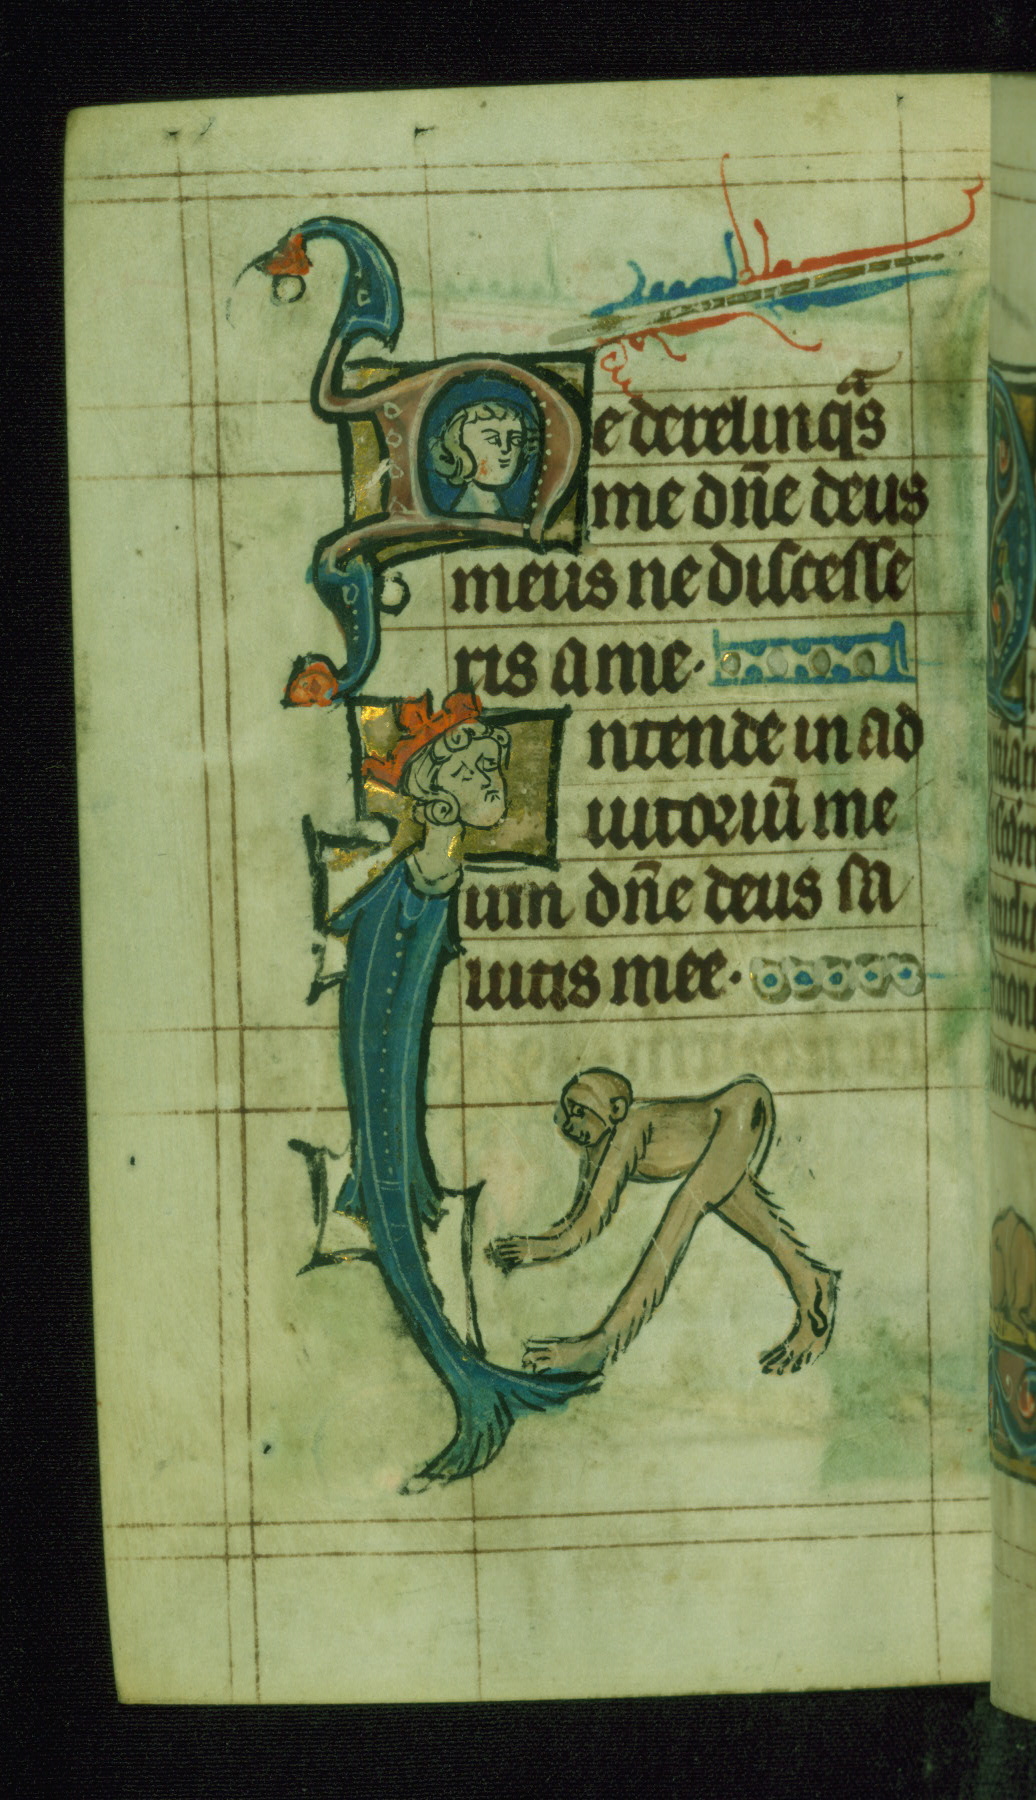 Ne derelinqͣs
me dn̄e deus
meus ne discesse
ris a me.
Intende in ad
iutoriū me
um dn̄e deus sa
lutis mee.